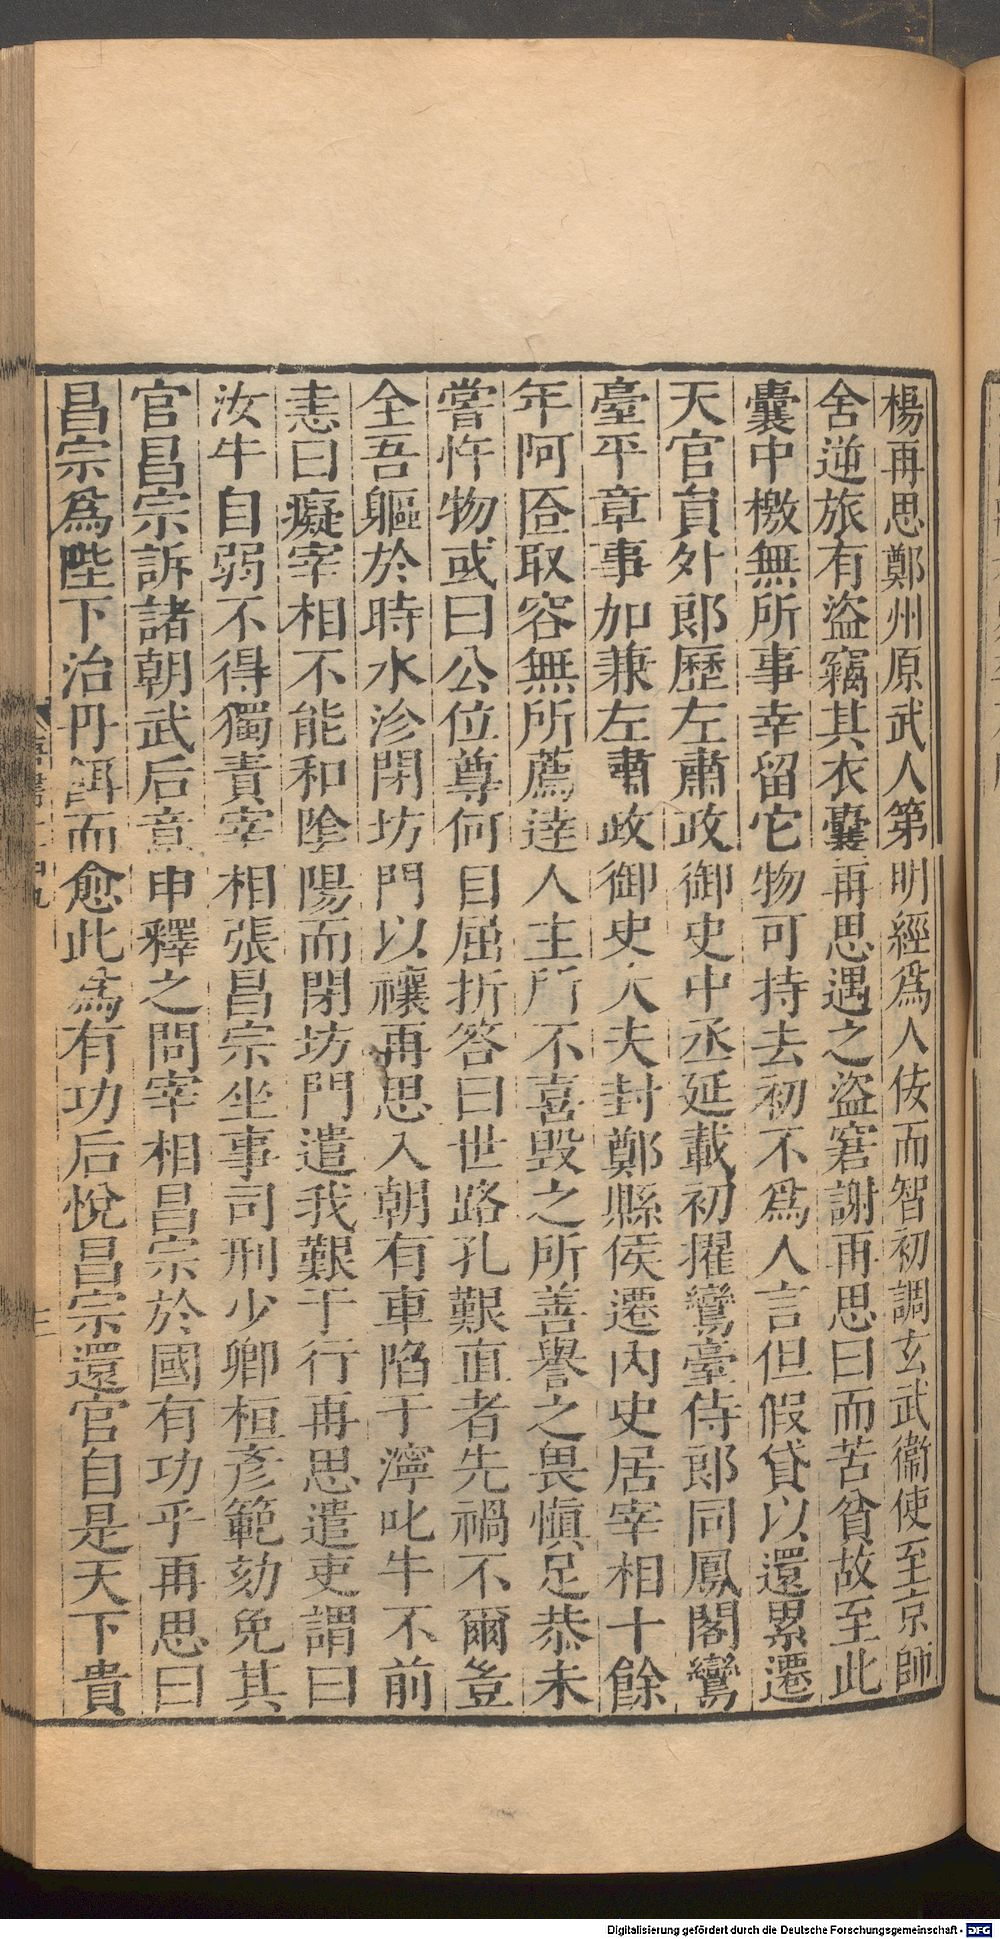 楊再思鄭州原武人第明經爲人佞而智初調玄武衞使至京師
舍逆旅有盜竊其衣囊再思遇之盜窘謝再思曰而苦貧故至此
囊中檄無所事幸留它物可持去初不爲人言但假貸以還累遷
天官員外郎歷左肅政御史中丞延載初擢鸞臺侍郎同鳳閣鸞
臺平章事加兼左肅政御史大夫封鄭縣侯遷內史居宰相十餘
年阿匼取容無所薦達人主所不喜毀之所善譽之畏愼足恭未
嘗忤物或曰公位尊何自屈折答曰世路孔艱直者先禍不爾豈
全吾軀於時水沴閉坊門以禳再思入朝有車陷于濘叱牛不前
恚曰癡宰相不能和陰陽而閉坊門遣我艱于行再思遣吏謂曰
汝牛自弱不得獨責宰相張昌宗坐事司刑少卿桓彥範劾免其
官昌宗訴諸朝武后意申釋之問宰相昌宗於國有功乎再思曰
昌宗爲陛下治丹餌而愈此爲有功后悅昌宗還官自是天下貴
三
Digitalisierung gefördert durch die Deutsche Forschungsgemeinschaft - DFG